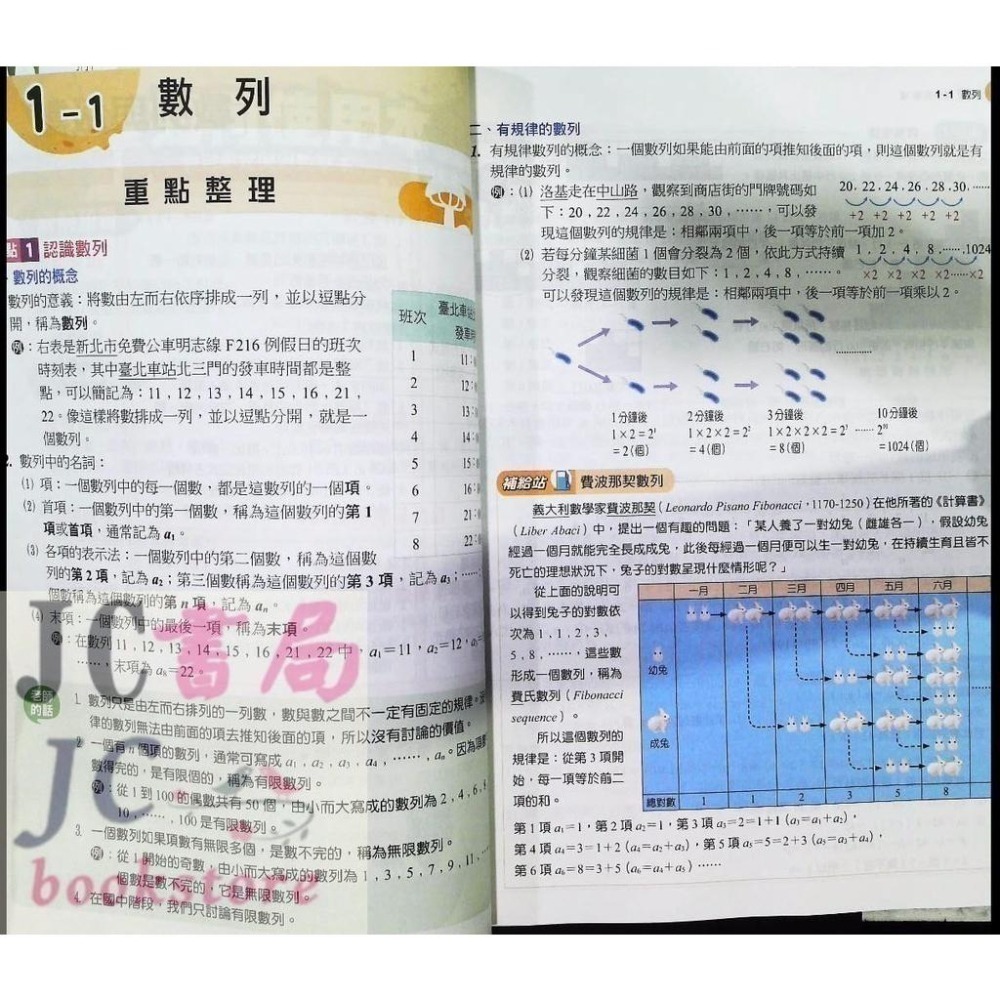 1-1 數列
重點整理
點 1 認識數列
數列的概念
數列的意義：將數由左而右依序排成一列，並以逗點分
開，稱為數列。
例：右表是新北市免費公車明志線 F216 例假日的班次
時刻表，其中臺北車站北三門的發車時間都是整
點，可以簡記為：11，12，13，14，15，16，21，
22。像這樣將數排成一列，並以逗點分開，就是一
個數列。
班次 臺北車站
發車時
1 11：
2 12：
3 13：
4 14：
5 15：
6 16：
7 21：
8 22：
2. 數列中的名詞：
(1) 項：一個數列中的每一個數，都是這數列的一個項。
(2) 首項：一個數列中的第一個數，稱為這個數列的第 1
項或首項，通常記為 a₁。
(3) 各項的表示法：一個數列中的第二個數，稱為這個數
列的第 2 項，記為 a₂；第三個數稱為這個數列的第 3 項，記為 a₃；……
個數稱為這個數列的第 n 項，記為 aₙ。
(4) 末項：一個數列中的最後一項，稱為末項。
例：在數列 11，12，13，14，15，16，21，22 中，a₁＝11，a₂＝12，a₃＝
……，末項為 a₈＝22。
老師的話
1. 數列只是由左而右排列的一列數，數與數之間不一定有固定的規律。
律的數列無法由前面的項去推知後面的項，所以沒有討論的價值。
2. 一個有 n 個項的數列，通常可寫成 a₁，a₂，a₃，a₄，……，aₙ。因為項數
數得完的，是有限個的，稱為有限數列。
例：從 1 到 100 的偶數共有 50 個，由小而大寫成的數列為 2，4，6，8
10，……，100 是有限數列。
3. 一個數列如果項數有無限多個，是數不完的，稱為無限數列。
例：從 1 開始的奇數，由小而大寫成的數列為 1，3，5，7，9，11，…
個數是數不完的，它是無限數列。
4. 在國中階段，我們只討論有限數列。
JC書局
JC
bookstore
1-1 數列
二、有規律的數列
1. 有規律數列的概念：一個數列如果能由前面的項推知後面的項，則這個數列就是有
規律的數列。
例：(1) 洛基走在中山路，觀察到商店街的門牌號碼如
下：20，22，24，26，28，30，……，可以發
現這個數列的規律是：相鄰兩項中，後一項等於前一項加 2。
20, 22, 24, 26, 28, 30, ……
+2 +2 +2 +2 +2
(2) 若每分鐘某細菌 1 個會分裂為 2 個，依此方式持續
分裂，觀察細菌的數目如下：1，2，4，8，……。
可以發現這個數列的規律是：相鄰兩項中，後一項等於前一項乘以 2。
1 , 2 , 4 , 8 , ……, 1024
×2 ×2 ×2 ×2……×2
1分鐘後 2分鐘後 3分鐘後 10分鐘後
1×2=2¹ 1×2×2=2² 1×2×2×2=2³ …… 2¹⁰
=2(個) =4(個) =8(個) =1024(個)
補給站 費波那契數列
義大利數學家費波那契（Leonardo Pisano Fibonacci，1170-1250）在他所著的《計算書》
（Liber Abaci）中，提出一個有趣的問題：「某人養了一對幼兔（雌雄各一），假設幼兔
經過一個月就能完全長成成兔，此後每經過一個月便可以生一對幼兔，在持續生育且皆不
死亡的理想狀況下，兔子的對數呈現什麼情形呢？」
從上面的說明可
以得到兔子的對數依
次為 1，1，2，3，
5，8，……，這些數
形成一個數列，稱為
費氏數列（Fibonacci
sequence）。
所以這個數列的
規律是：從第 3 項開
始，每一項等於前二
項的和。
一月 二月 三月 四月 五月 六月
幼兔
成兔
總對數 1 1 2 3 5 8
第 1 項 a₁=1，第 2 項 a₂=1，第 3 項 a₃=2=1+1 (a₃=a₁+a₂)，
第 4 項 a₄=3=1+2 (a₄=a₂+a₃)，第 5 項 a₅=5=2+3 (a₅=a₃+a₄)，
第 6 項 a₆=8=3+5 (a₆=a₄+a₅) ……